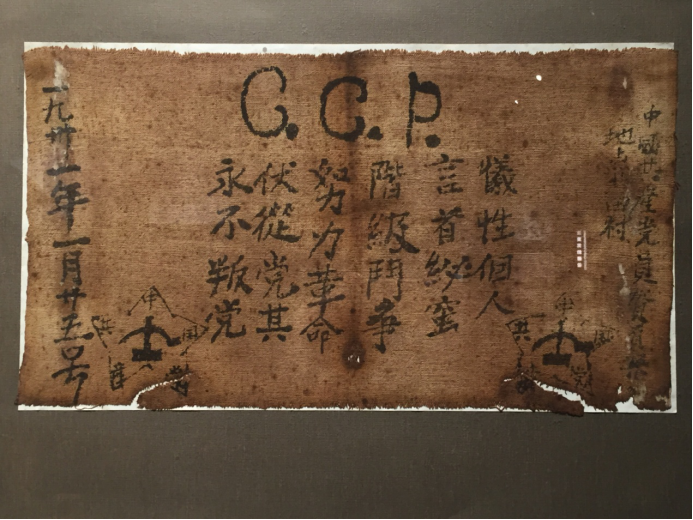 C.C.P.
中國共產党員
地点
村
犧牲個人
言首秘蜜
階級鬥争
努力革命
伏從党其
永不叛党
一九卅一年一月廿五号
中
共
産
党